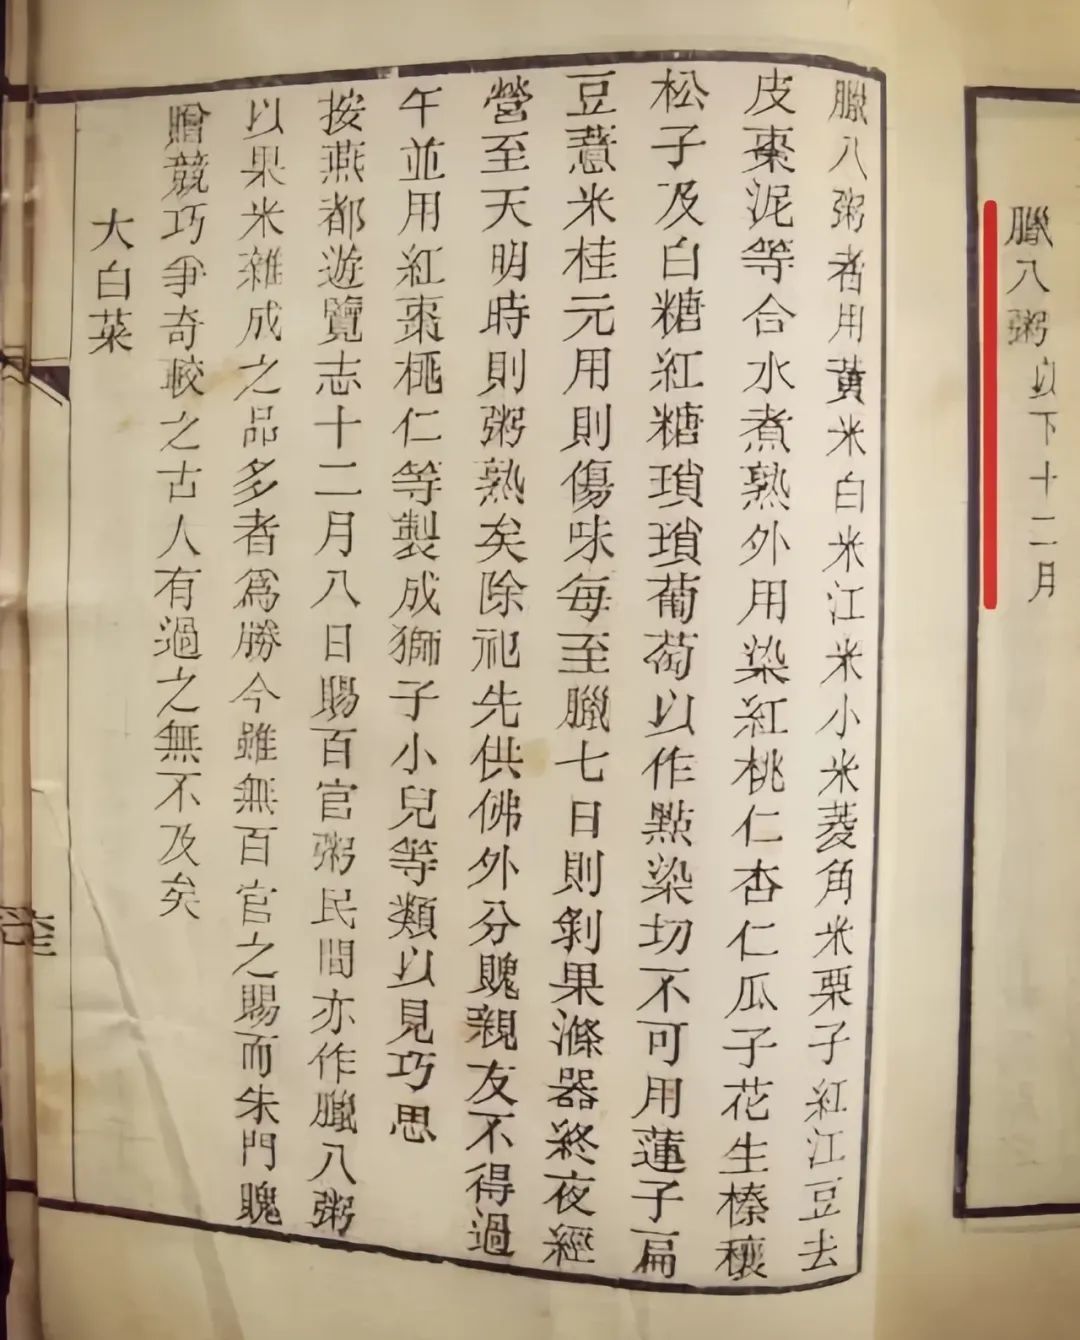 臘八粥以下十二月
臘八粥者用黃米白米江米小米菱角米栗子紅江豆去
皮棗泥等合水煮熟外用染紅桃仁杏仁瓜子花生榛穰
松子及白糖紅糖瑣瑣葡萄以作點染切不可用蓮子扁
豆薏米桂元用則傷味每至臘七日則剝果滌器終夜經
營至天明時則粥熟矣除祀先供佛外分餽親友不得過
午並用紅棗桃仁等製成獅子小兒等類以見巧思
按燕都遊覽志十二月八日賜百官粥民間亦作臘八粥
以果米雜成之品多者為勝今雖無百官之賜而朱門餽
贈競巧爭奇較之古人有過之無不及矣
大白菜